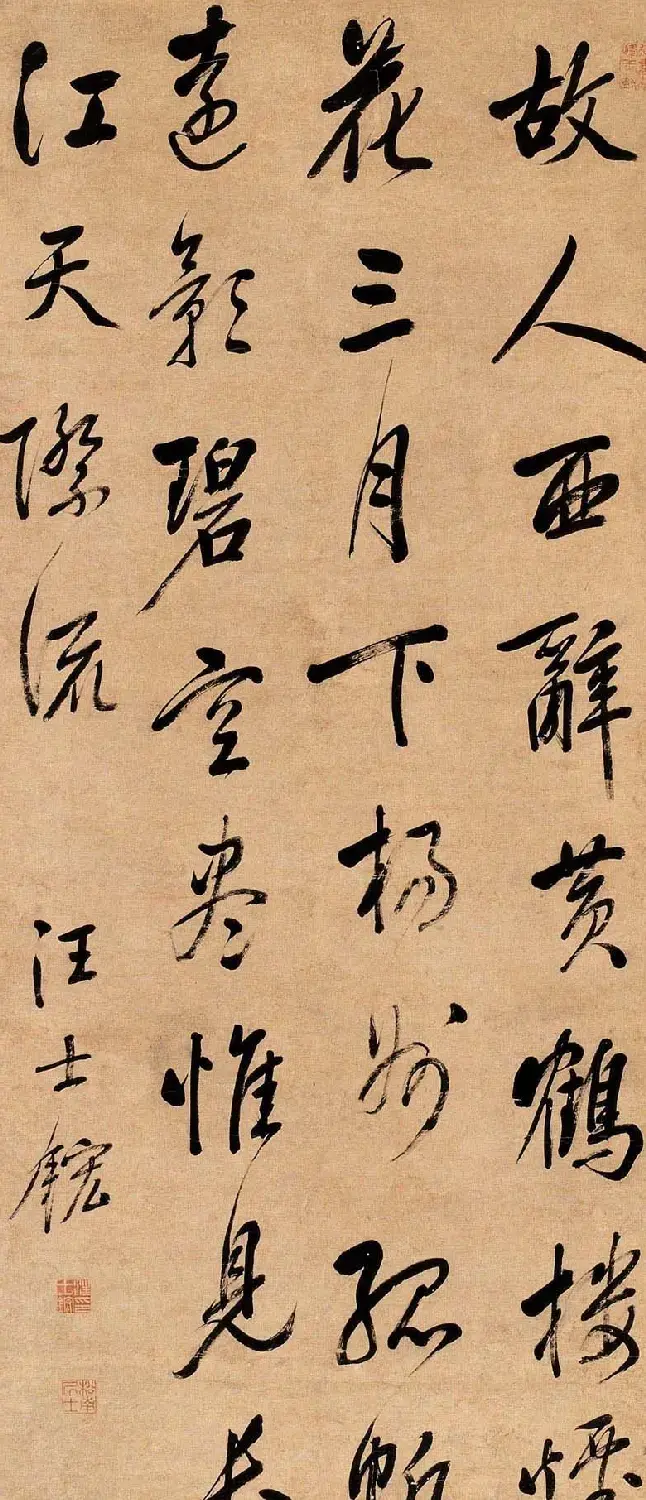 故人西辭黃鶴樓煙
花三月下楊州孤帆
遠影碧空盡惟見長
江天際流
汪士鋐